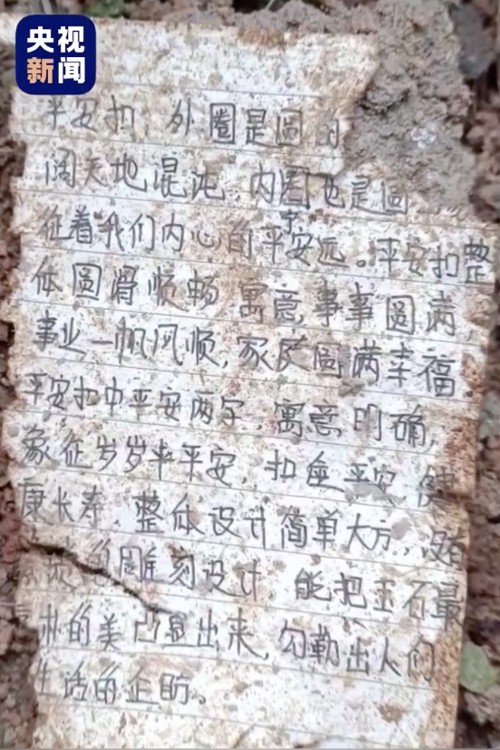 央视
新闻
平安扣，外圈是圆的
阔天地混沌，内圈也是圆
征着我们内心的平安宁远。平安扣整
体圆滑顺畅 寓意事事圆满，
事业一帆风顺，家庭圆满幸福。
平安扣中平安两字，寓意明确，
象征岁岁平平安，扣 平安 健
康长寿，整体设计简单大方，没有
的雕刻设计 能把玉石最
的美凸显出来，勾勒出人们
生活的企盼。